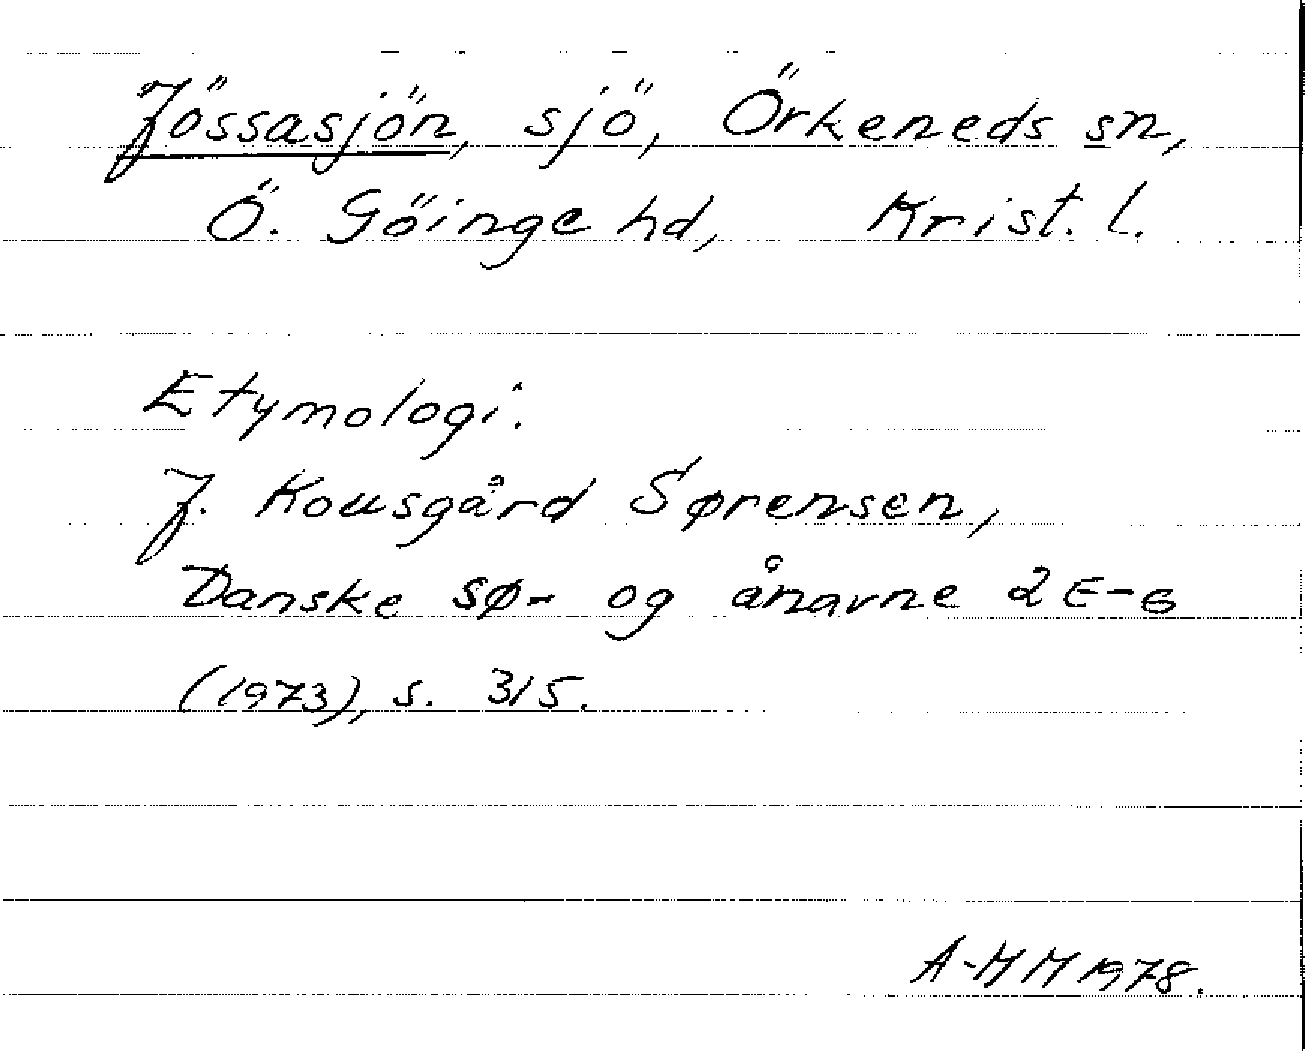 Jössasjön, sjö, Örkeneds sn,
Ö. Göinge hd, Krist. l.
Etymologi.
J. Kousgård Sørensen,
Danske sø- og ånavne 2 E-G
(1973), s. 315.
A-MM 1978.